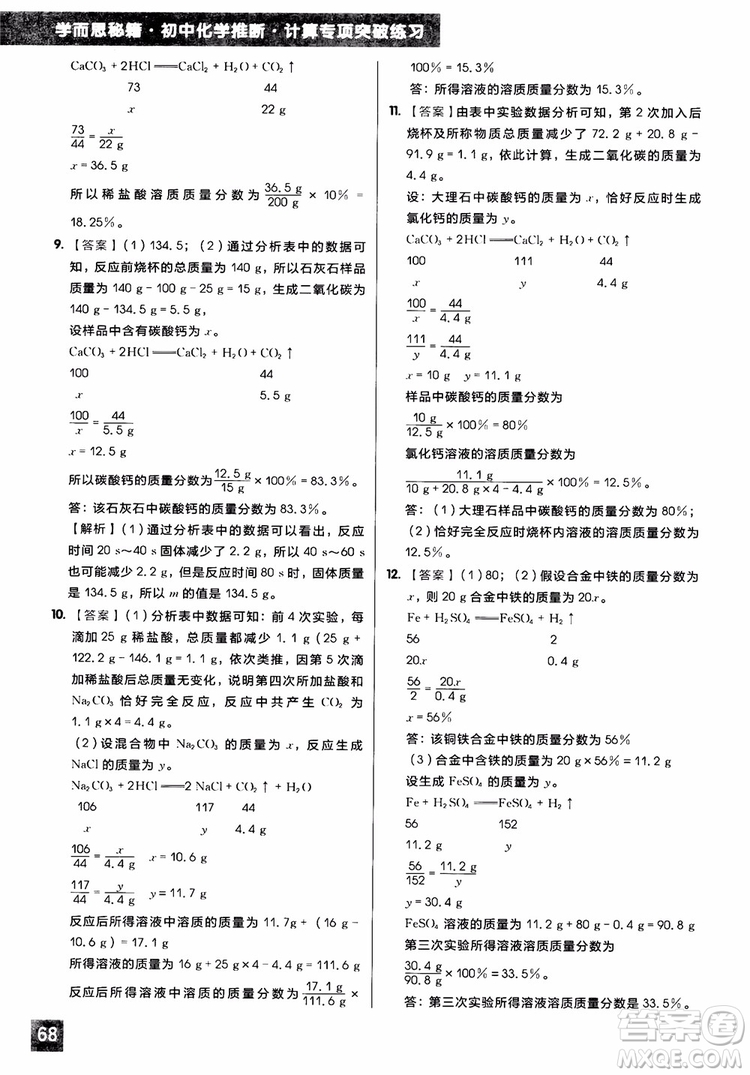 学而思秘籍·初中化学推断·计算专项突破练习
CaCO₃ + 2HCl ══ CaCl₂ + H₂O + CO₂ ↑
73 44
x 22 g
73/44 = x/22 g
x = 36.5 g
所以稀盐酸溶质质量分数为 36.5 g/200 g × 10% =
18.25%。
9. 【答案】(1) 134.5；(2) 通过分析表中的数据可
知，反应前烧杯的总质量为 140 g，所以石灰石样品
质量为 140 g - 100 g - 25 g = 15 g，生成二氧化碳为
140 g - 134.5 g = 5.5 g，
设样品中含有碳酸钙为 x。
CaCO₃ + 2HCl ══ CaCl₂ + H₂O + CO₂ ↑
100 44
x 5.5 g
100/x = 44/5.5 g
x = 12.5 g
所以碳酸钙的质量分数为 12.5 g/15 g × 100% = 83.3%。
答：该石灰石中碳酸钙的质量分数为 83.3%。
【解析】(1) 通过分析表中的数据可以看出，反应
时间 20 s～40 s 固体减少了 2.2 g，所以 40 s～60 s
也可能减少了 2.2 g，反应时间 80 s 时，固体质量
是 134.5 g，所以 m 的值是 134.5 g。
10. 【答案】(1) 分析表中数据可知：前 4 次实验，每
滴加 25 g 稀盐酸，总质量都减少 1.1 g（25 g +
122.2 g - 146.1 g = 1.1 g），依次类推，因第 5 次滴
加稀盐酸后总质量无变化，说明第四次所加盐酸与
Na₂CO₃ 恰好完全反应，反应中共产生 CO₂ 为
1.1 g × 4 = 4.4 g。
(2) 设混合物中 Na₂CO₃ 的质量为 x，反应生成
NaCl 的质量为 y。
Na₂CO₃ + 2HCl ══ 2 NaCl + CO₂ ↑ + H₂O
106 117 44
x y 4.4 g
106/44 = x/4.4 g x = 10.6 g
117/44 = y/4.4 g y = 11.7 g
反应后所得溶液中溶质的质量为 11.7g +（16 g -
10.6 g）= 17.1 g
所得溶液的质量为 16 g + 25 g × 4 - 4.4 g = 111.6 g
反应后所得溶液中溶质的质量分数为 17.1 g/111.6 g ×
68
100% = 15.3%
答：所得溶液的溶质质量分数为 15.3%。
11. 【答案】由表中实验数据分析可知，第 2 次加入后
烧杯及所称物质总质量减少了 72.2 g + 20.8 g -
91.9 g = 1.1 g，依此计算，生成二氧化碳的质量为
4.4 g。
设：大理石中碳酸钙的质量为 x，恰好反应时生成
氯化钙的质量为 y。
CaCO₃ + 2HCl ══ CaCl₂ + H₂O + CO₂ ↑
100 111 44
x y 4.4 g
100/x = 44/4.4 g
111/y = 44/4.4 g
x = 10 g y = 11.1 g
样品中碳酸钙的质量分数为
10 g/12.5 g × 100% = 80%
氯化钙溶液的质量分数为
11.1 g/10 g + 20.8 g × 4 - 4.4 g × 100% = 12.5%。
答：(1) 大理石样品中碳酸钙的质量分数为 80%；
(2) 恰好完全反应时烧杯内溶液的溶质质量分数为
12.5%。
12. 【答案】(1) 80；(2) 假设合金中铁的质量分数为
x，则 20 g 合金中铁的质量为 20x。
Fe + H₂SO₄ ══ FeSO₄ + H₂ ↑
56 2
20x 0.4 g
56/2 = 20x/0.4 g
x = 56%
答：该铜铁合金中铁的质量分数为 56%
(3) 合金中含铁的质量为 20 g × 56% = 11.2 g
设生成 FeSO₄ 的质量为 y。
Fe + H₂SO₄ ══ FeSO₄ + H₂ ↑
56 152
11.2 g y
56/152 = 11.2 g/y
y = 30.4 g
FeSO₄ 溶液的质量为 11.2 g + 80 g - 0.4 g = 90.8 g
第三次实验所得溶液溶质质量分数为
30.4 g/90.8 g × 100% = 33.5%
答：第三次实验所得溶液溶质质量分数是 33.5%。
答案圈
MXQE.COM